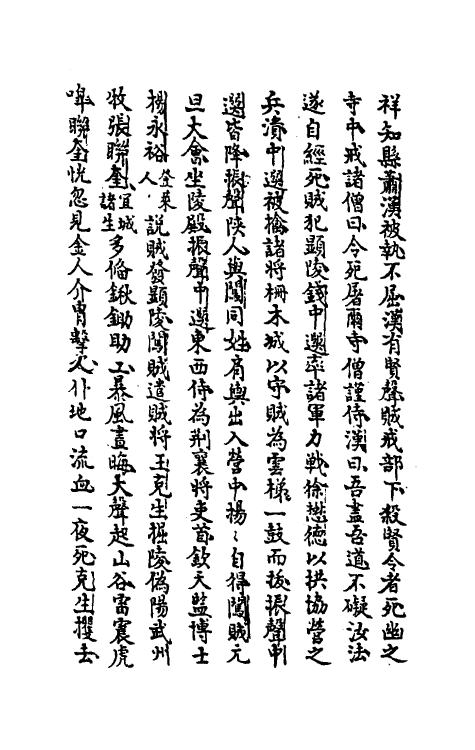 祥知縣蕭漢被執不屈漢有賢聲賊戒部下殺賢令者死幽之
寺中戒諸僧曰令死屠爾寺僧謹侍漢曰吾盡吾道不礙汝法
遂自經死賊犯顯陵錢中選率諸軍力戰徐懋德以拱協營之
兵潰中選被擒諸將柵木城以守賊為雲梯一鼓而拔振聲中
選皆降振聲陝人與闖同姓肩輿出入營中揚〻自得闖賊元
旦大會坐陵殿振聲中選東西侍為荆襄將吏首欽天監博士
楊永裕登萊人說賊發顯陵闖賊遣賊將王克生掘陵偽陽武州
牧張聯奎宜城諸生多備鍬鋤助工暴風晝晦大聲起山谷雷震虎
嘷聯奎恍忽見金人介胄擊之仆地口流血一夜死克生攫去